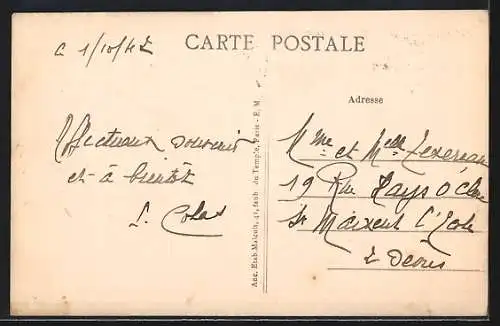 CARTE POSTALE
1/10/42
Affectueux souvenir
et à bientôt
L. Colas
Anc. Etab. Malcuit, 41, faub. du Temple, Paris - E. M
Adresse
Mme et Melle
19 Rue
St Maixent l'Ecole
2 Sèvres